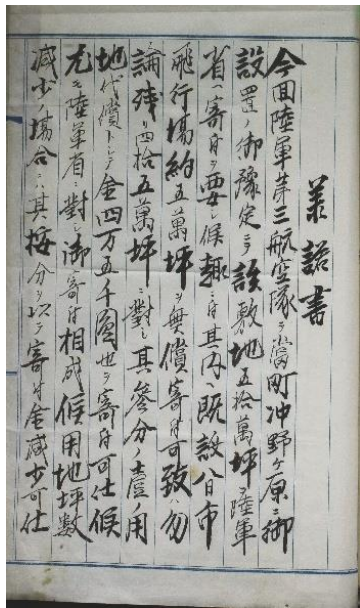 承諾書
今回陸軍第三航空隊ヲ當町沖野ヶ原ニ御
設置ノ御豫定ニテ該敷地五拾萬坪ヲ陸軍
省ヘ寄附ヲ要シ候趣ニ付其内ヘ既設八日市
飛行場約五萬坪ヲ無償寄附可致ハ勿
論残リ四拾五萬坪ニ對シ其參分ノ壹ノ用
地代償トシテ金四万五千圓也ヲ寄附可仕候
尤モ陸軍省ニ對シ御寄附相成候用地坪数
減少ノ場合ニハ其按分ヲ以テ寄付金減少可仕